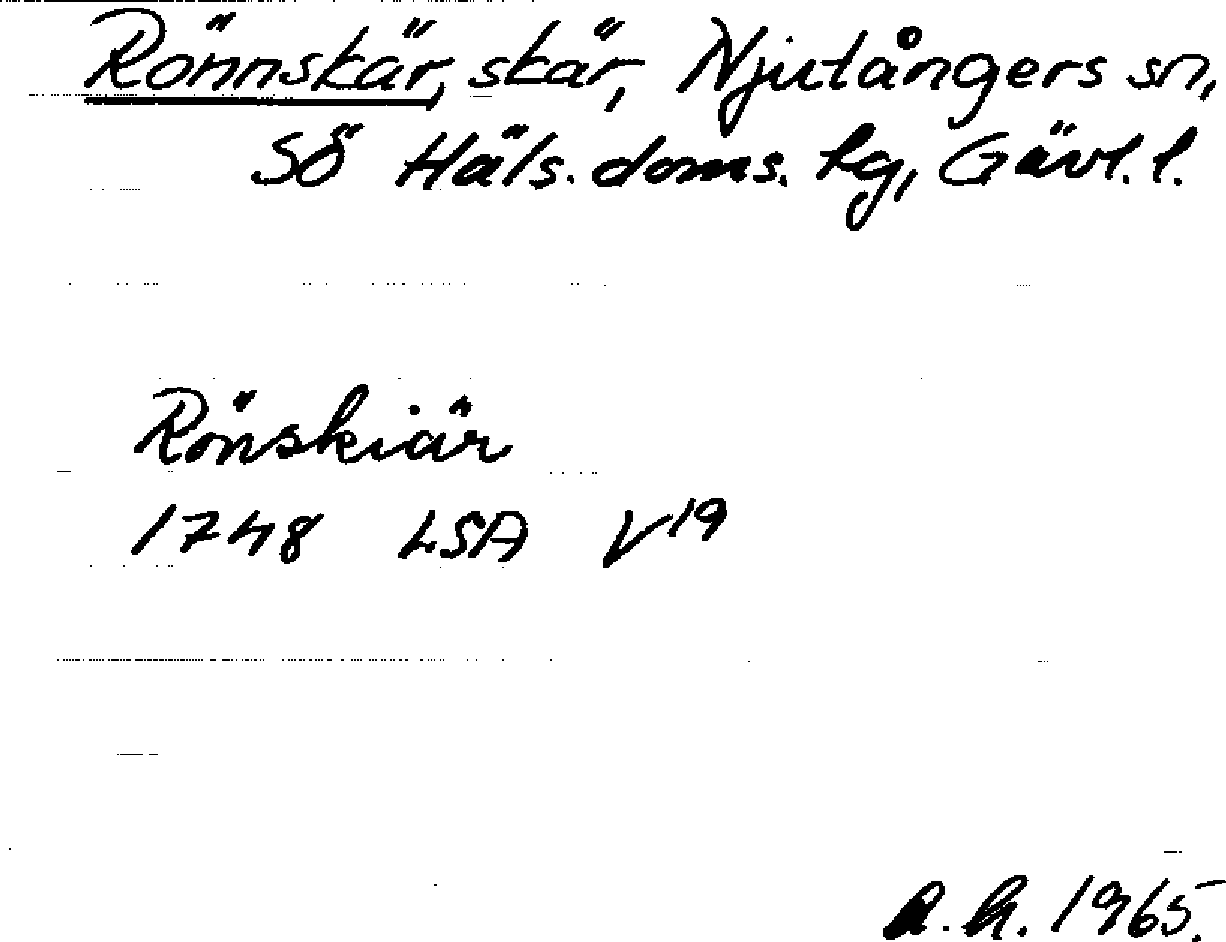 Rönnskär, skär, Njutångers sn,
SÖ Häls. doms. hg, Gävl. l.
Rönskiär
1748 LSA V19
a.h. 1965.